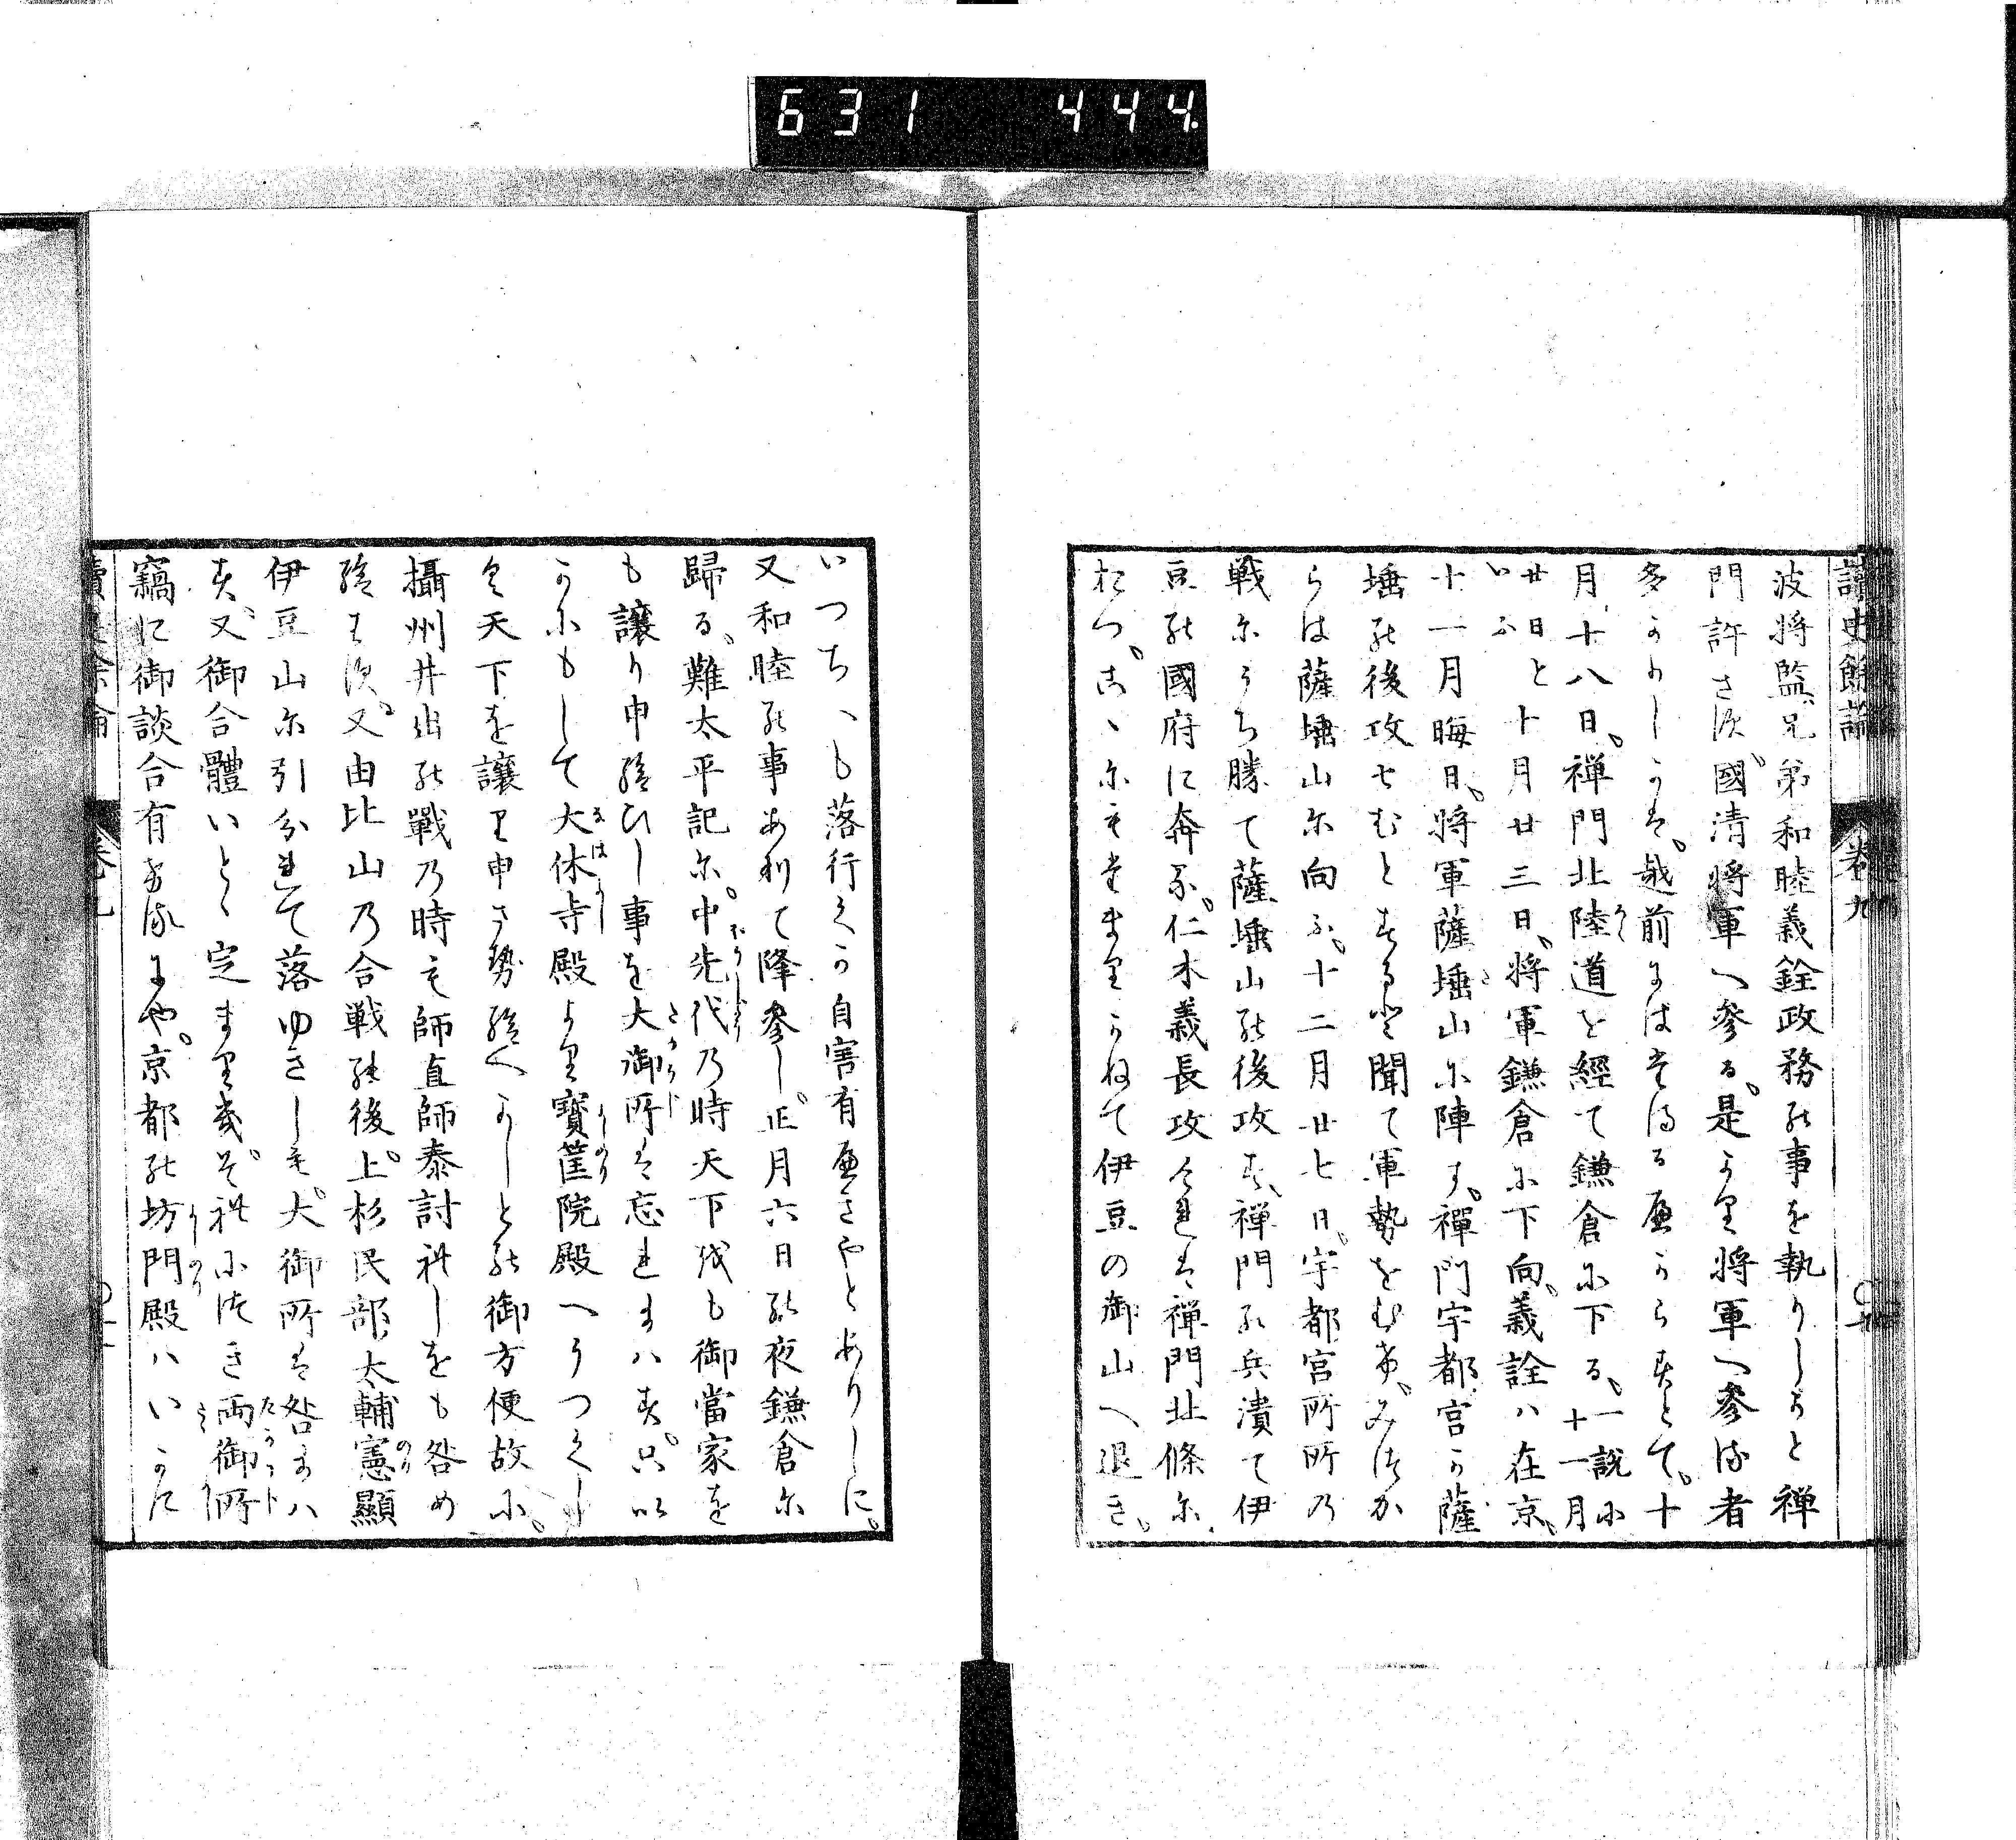 631 444
讀史餘論 卷九
波將監兄弟和睦義銓政務の事を執りしかと禅
門許さす國清將軍へ參る是より將軍へ參る者
多かりしかは越前にはたまるへからすとて十
月十八日禅門北陸道を經て鎌倉に下る一説に十一月
廿日といふ十月廿三日將軍鎌倉に下向義詮ハ在京
十一月晦日將軍薩埵山に陣す禅門宇都宮か薩
埵の後攻せむとする由聞て軍勢をむけみつか
らは薩埵山に向ふ十二月廿七日宇都宮所所乃
戰にうち勝て薩埵山の後攻す禅門の兵潰て伊
豆の國府に奔る仁木義長攻くれは禅門北條に
おつこゝにもたまりかねて伊豆の御山へ退き
いつちゝも落行くか自害有へきやとありしに
又和睦の事ありて降參し正月六日の夜鎌倉に
歸る難太平記に中先代乃時天下をも御當家を
も讓り申給ひし事を大御所は忘れまハす只い
かにもして大休寺殿より寳筐院殿へうつくし
く天下を讓り申させ給へかしとの御方便故に
攝州井出の戰乃時も師直師泰討れしをも咎め
給はす又由比山乃合戰の後上杉民部太輔憲顯
伊豆山に引分れて落ゆきしも大御所は咎まハ
す又御合體いとゝ定まり幾それにつき両御所
竊に御談合有けるにや京都の坊門殿ハいかに